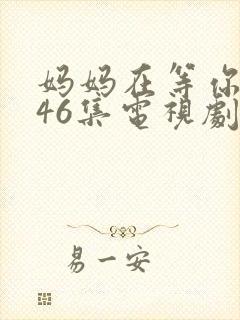 妈妈在等你
46集電視劇
易一安